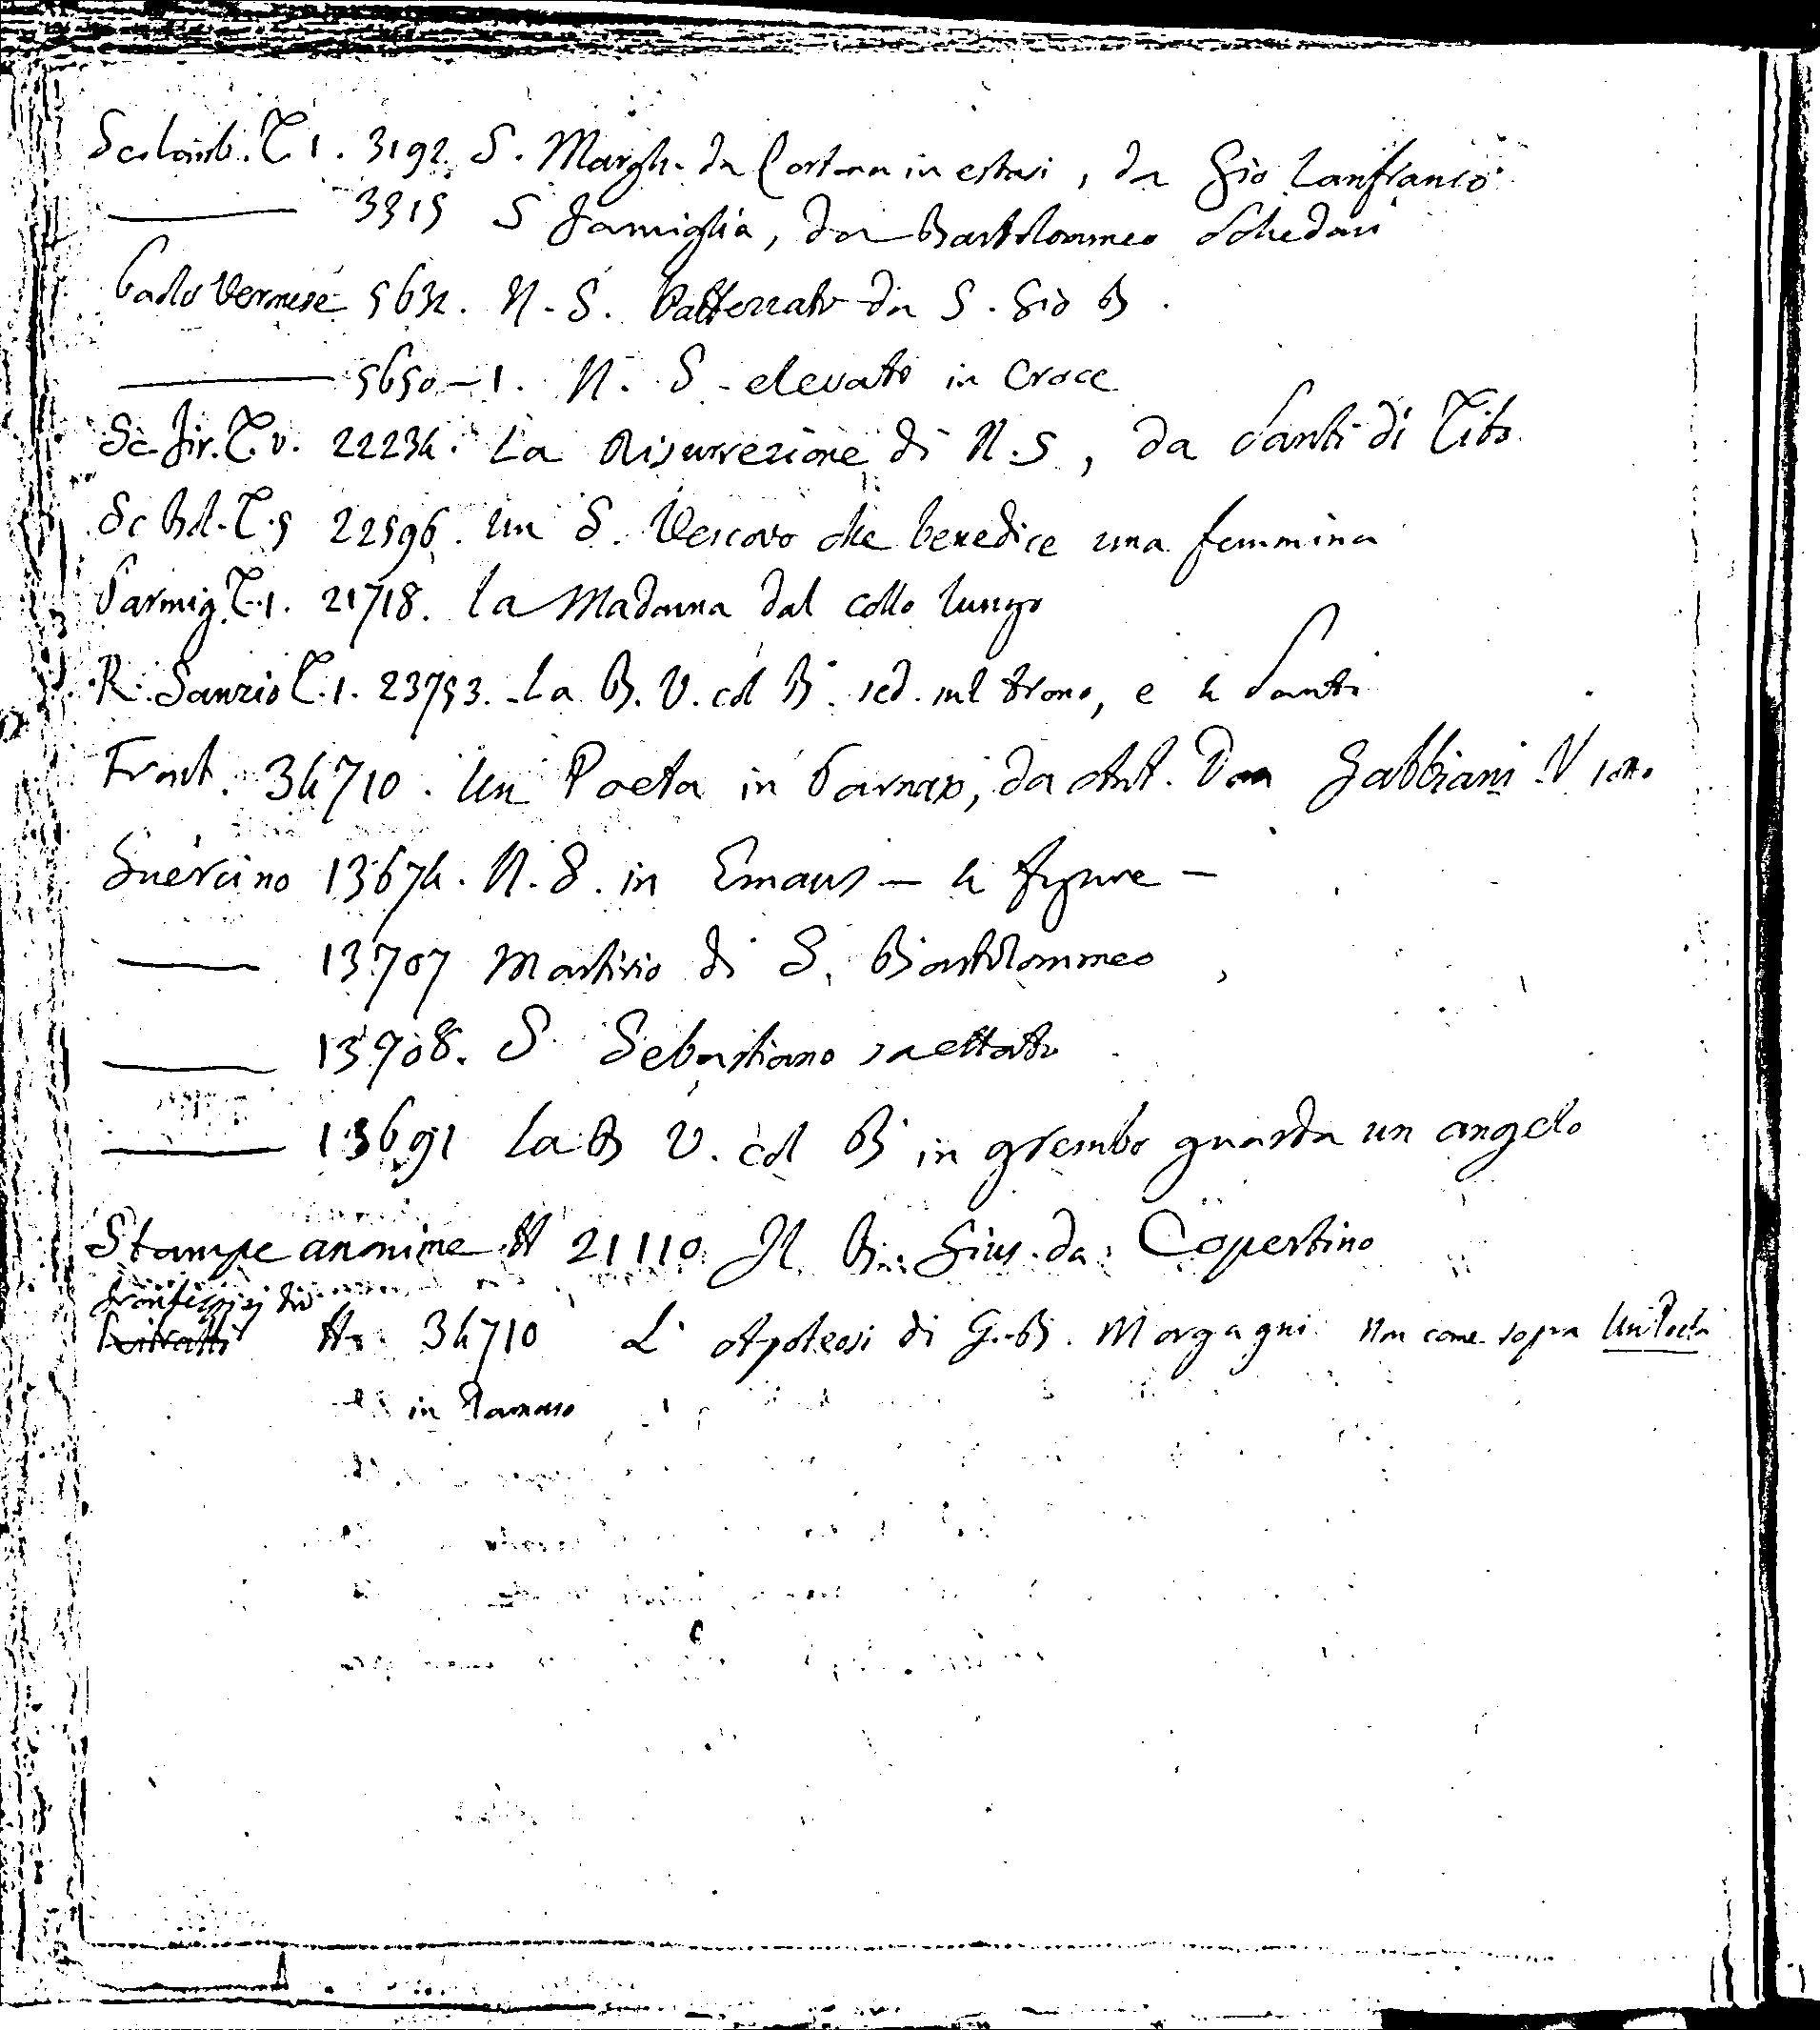 Sc. lomb. T. 1. 3192. S. Margh. da Cortona in estasi, da Gio Lanfranco
——— 3315 S Famiglia, da Bartolommeo Schedoni
Paolo Veronese 5634. N. S. battezzato da S. Gio B.
——— 5650-1. N. S. elevato in Croce
Sc. fir. T. V. 22234. La Risurrezione di N. S, da Santi di Tito
Sc Bol. T. 5 22596. un S. Vescovo che benedice una femmina
Parmig. T. 1. 21718. la Madonna dal collo lungo
R. Sanzio T. 1. 23753. La B. V. col B. sed. sul trono, e 4 Santi
Front. 34710. Un Poeta in Parnaso, da Ant. Dom Gabbiani V sotto
Guercino 13674. N. S. in Emaus — 4 figure —
——— 13707 Martirio di S. Bartolommeo
——— 13708. S. Sebastiano saettato
——— 13691 La B V. col B in grembo guarda un angelo
Stampe anonime N 21110 Il B. Gius. da Copertino
frontespizj
Ritratti N. 34710 L'Apoteosi di G. B. Morgagni Non come sopra Un Poeta
in Parnaso